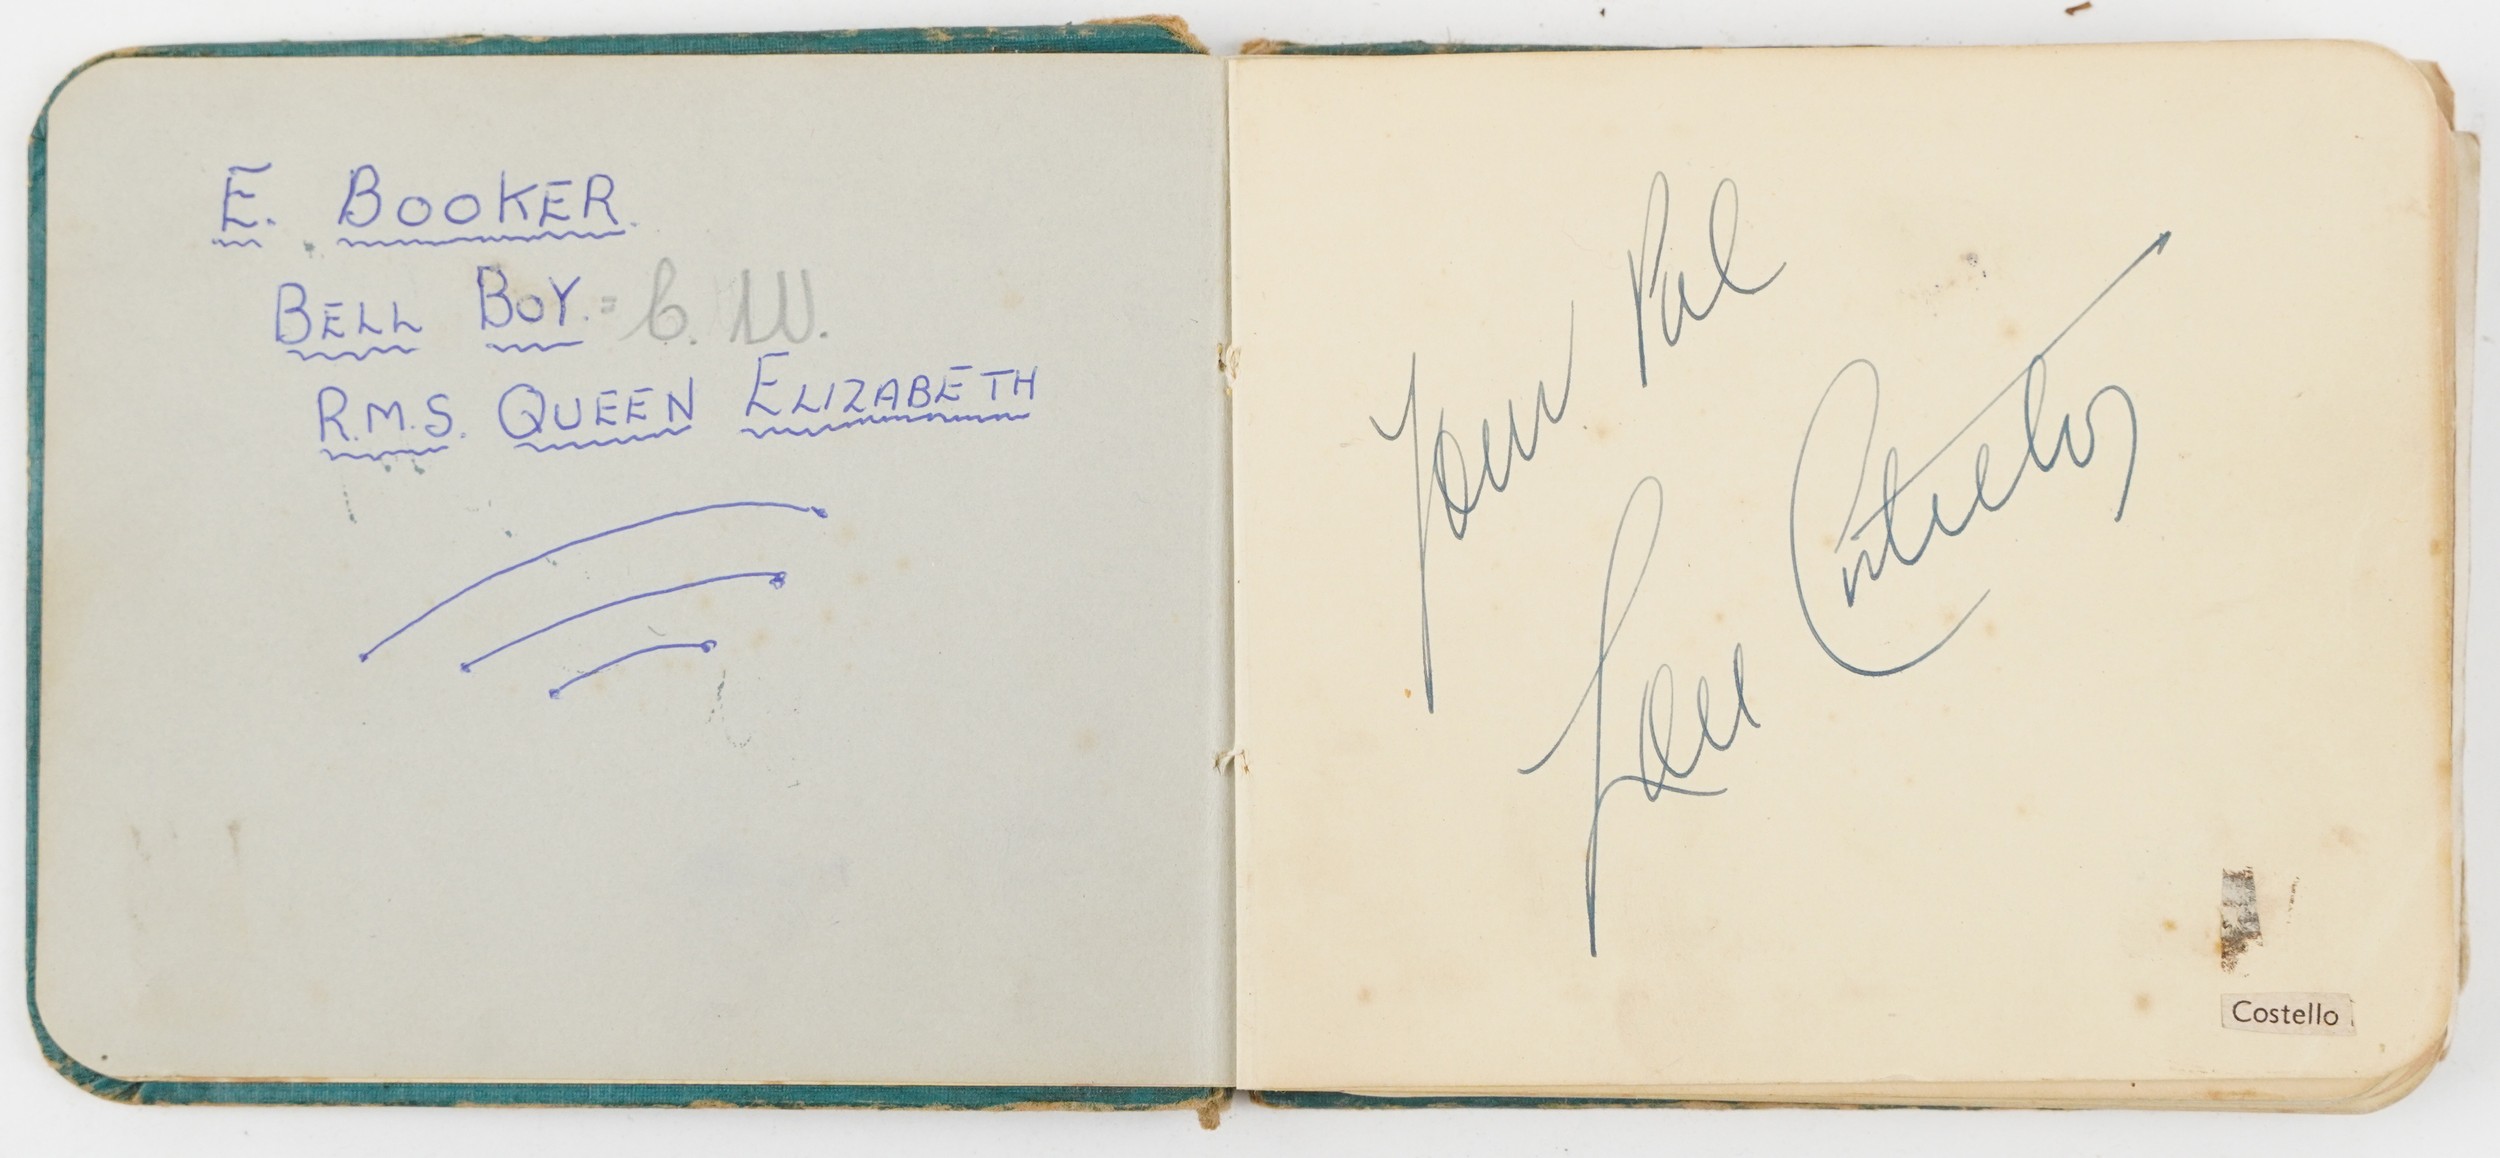 E. BOOKER.
BELL BOY. = C. W.
R.M.S. QUEEN ELIZABETH
Your Pal
Lou Costello
Costello